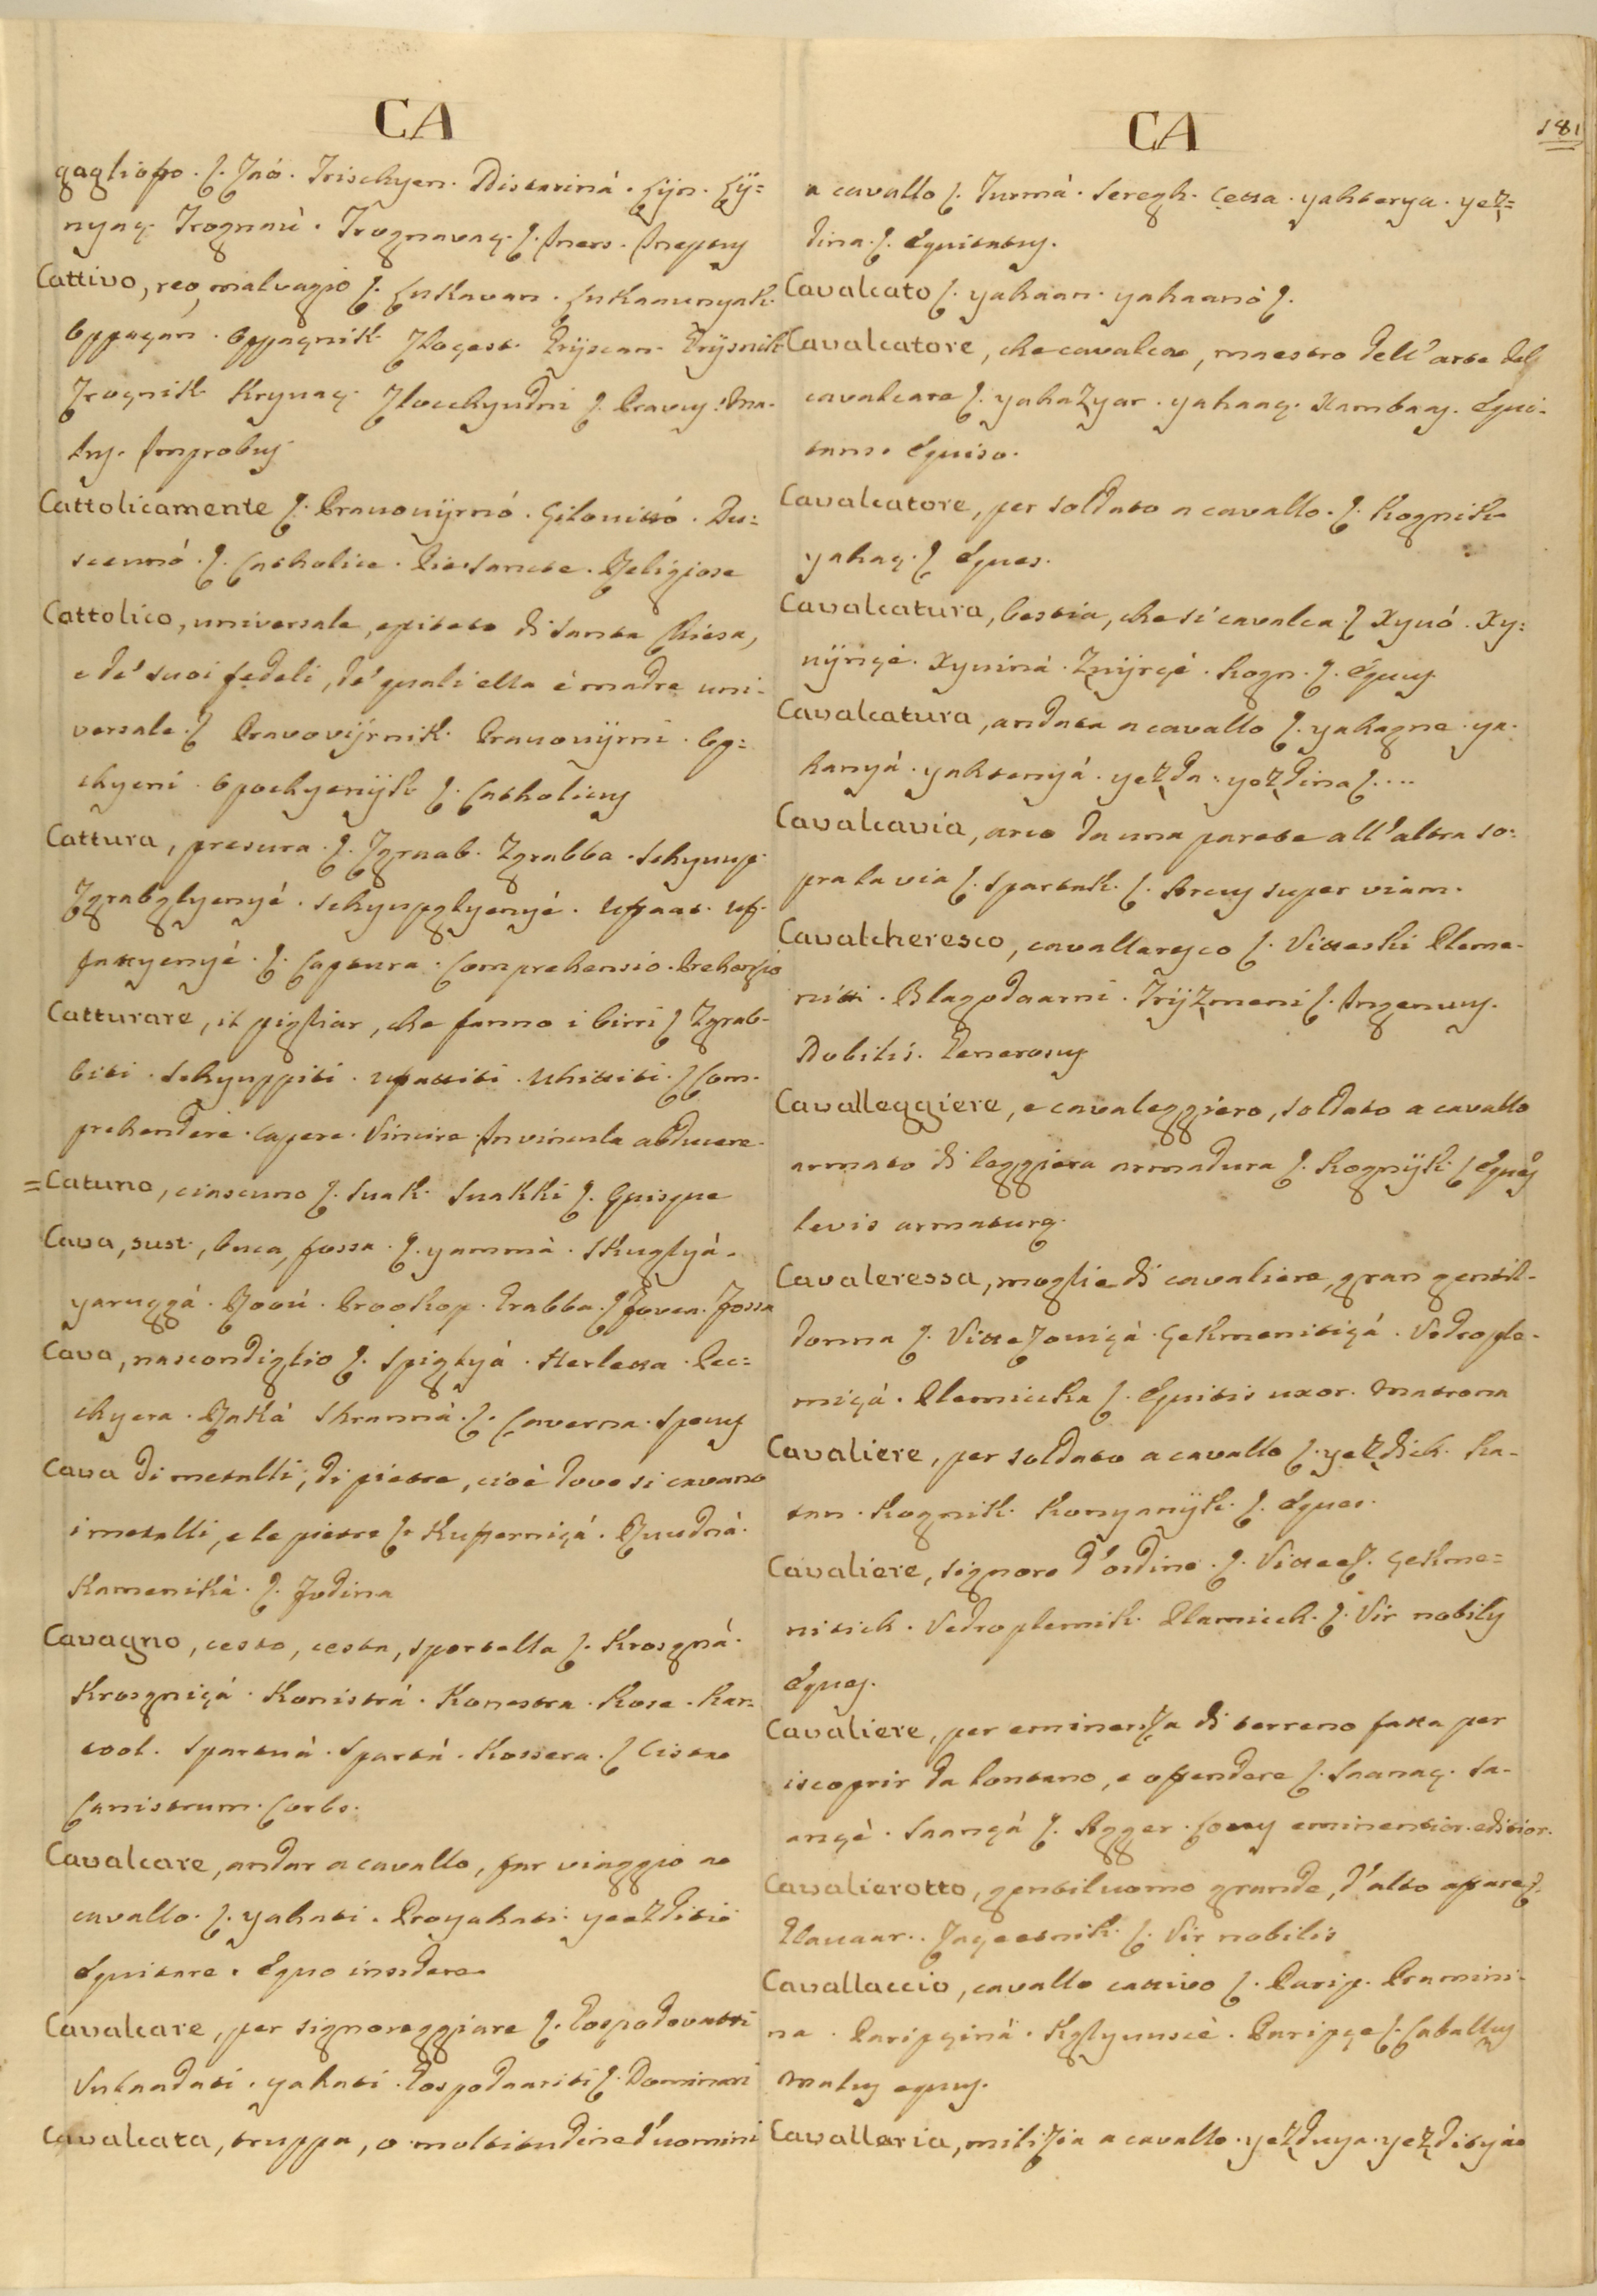 CA
gaglioffo. ſ. Zaó. Trischyen. Nistarinà. Lÿn. Lÿ=
nyaç. Trognaù. Trognavaç. ſ. Iners. Ineptuſ
Cattivo, reo, malvagio ſ. Lukavan. Lukaunyak.
Oppaçan. Oppaçnik. Zloçest. Prÿscan. Prÿsnik
Zroçnik. Kryvaç. Zlocchyudni ſ. Pravuſ. Ma-
luſ. Improbuſ
Cattolicamente ſ. Pravovÿrnó. Çilovittó. Du=
scevnó. ſ. Catholice. Pie. Sancte. Religiose
Cattolico, universale, epiteto di Santa Chiesa,
e de' suoi fedeli, de' quali ella è madre uni-
versale. ſ Pravovÿrnik. Pravovÿrni. Op=
chyeni. Opochyenÿk ſ. Catholicuſ
Cattura, presura. ſ. Zgraab. Zgrabba. Schyuup.
Zgrabglyenyé. Schyupglyenyé. Uffaat. Uf-
fattyenyé. ſ. Captura. Comprehensio. Prehensio
Catturare, il pigliar, che fanno i birri ſ Zgrab-
biti. Schyuppiti. Uffattiti. Uhittiti. ſ Com-
prehendere. Capere. Vincire. In vincula abducere.
=Catuno, ciascuno ſ. Svak. Svakki ſ. Quisque
Cava, sust., buca, fossa. ſ. yammà. Skuglyá.
yaruggá. Rovú. Prookop. Grabba. ſ Fovea. Fossa
Cava, nascondiglio ſ. Spiglyá. Herletta. Pec=
chyera. Rakà Skrannà. ſ. Caverna. Specuſ
Cava di metalli, di pietre, cioè dove si cavano
i metalli, e le pietre ſ. Kuffernicá. Ruudnà.
Kamenikà. ſ. Fodina
Cavagno, cesto, cesta, sportella ſ. Krosgnà.
Krosgniçá. Konistrà. Konestra. Kose. Kar-
tool. Spartuà. Spartà. Kossera. ſ Cistae
Canistrum. Corbs.
Cavalcare, andar a cavallo, far viaggio a
cavallo. ſ. yahati. Proyahati. yeezditi
Equitare. Equo insidere
Cavalcare, per signoreggiare ſ. Gospodovatti
Vlaadati. yahati. Gospodaariti ſ. Dominari
Cavalcata, truppa, o moltitudine d'uomini
CA
181
a cavallo ſ. Turmà. Seregh. Cetta. yahterya. yez=
dina. ſ. Equitatuſ.
Cavalcato ſ. yahaan. yahaanó ſ.
Cavalcatore, che cavalca, maestro dell' arte del
cavalcare ſ. yahazyar. yahaaç. Kambaaſ. Equi-
tans. Equiso.
Cavalcatore, per soldato a cavallo. ſ. Kognik
yahaç. ſ Eques.
Cavalcatura, bestia, che si cavalca ſ Xyvó. Xy=
vÿnçè. Xyvinà. Zvÿrçè. Kogn. ſ. Equuſ
Cavalcatura, andata a cavallo ſ. yahagne. ya-
hanyá. yahtenyá. yezda. yezdina ſ. ...
Cavalcavia, arco da una parete all' altra so=
pra la via ſ. Spartak. ſ. Arcuſ super viam.
Cavalcheresco, cavallaresco ſ. Vitteski Pleme-
nitti. Blagodaarni. Trÿzmeni ſ. Ingenuuſ.
Nobilis. Generosuſ
Cavalleggiere, e cavaleggiero, soldato a cavallo
armato di leggiera armadura ſ. Kognÿk ſ Equeſ
levis armaturę.
Cavaleressa, moglie di cavaliere, gran gentil-
donna ſ. Vittezoviçà. Çekmenitiçá. Vedrople-
miçá. Plemicka ſ. Equitis uxor. Matrona
Cavaliere, per soldato a cavallo ſ. yezdich. Ka-
tan. Kognik. Konyanÿk. ſ. Eques.
Cavaliere, signore d'ordine. ſ. Vitteez. Çekme=
nitich. Vedroplemik. Plamicch. ſ. Vir nobiliſ
Equeſ.
Cavaliere, per eminenza di terreno fatta per
iscoprir da lontano, e offendere ſ. Saanaç. Sa-
ançè. Saançà ſ. Agger. Locuſ eminentior. editior.
Cavalierotto, gentiluomo grande, d'alto affare ſ.
Glavaar. Zaçeetnik. ſ. Vir nobilis
Cavallaccio, cavallo cattivo ſ. Parip. Pramini-
na. Paripçinà. Kglyuuscè. Paripçe ſ. Caballuſ
Maluſ equuſ.
Cavallaria, milizia a cavallo. yezduya. yezdityá